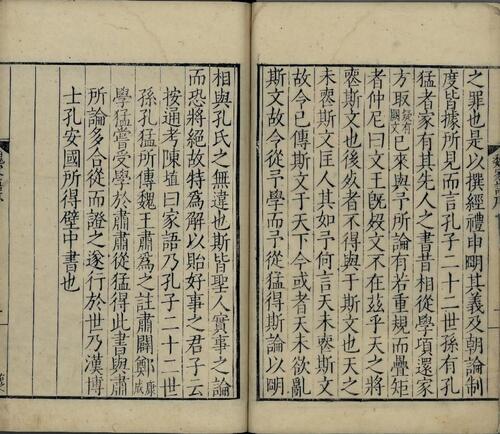 之罪也是以撰經禮申明其義及朝論制
度皆據所見而言孔子二十二世孫有孔
猛者家有其先人之書昔相從學項還家
方取疑有闕文已來與予所論有若重規而疊矩
者仲尼曰文王旣歿文不在茲乎天之將
喪斯文也後歿者不得與于斯文也天之
未喪斯文匡人其如予何言天未喪斯文
故今已傳斯文于天下今或者天未欲亂
斯文故令從予學而予從猛得斯論以明
相與孔氏之無違也斯皆聖人實事之論
而恐將絕故特爲解以貽好事之君子云
按通考陳埴曰家語乃孔子二十二世
孫孔猛所傳魏王肅爲之註肅闢鄭康成
學猛嘗受學於肅肅從猛得此書與肅
所論多合從而證之遂行於世乃漢博
士孔安國所得壁中書也